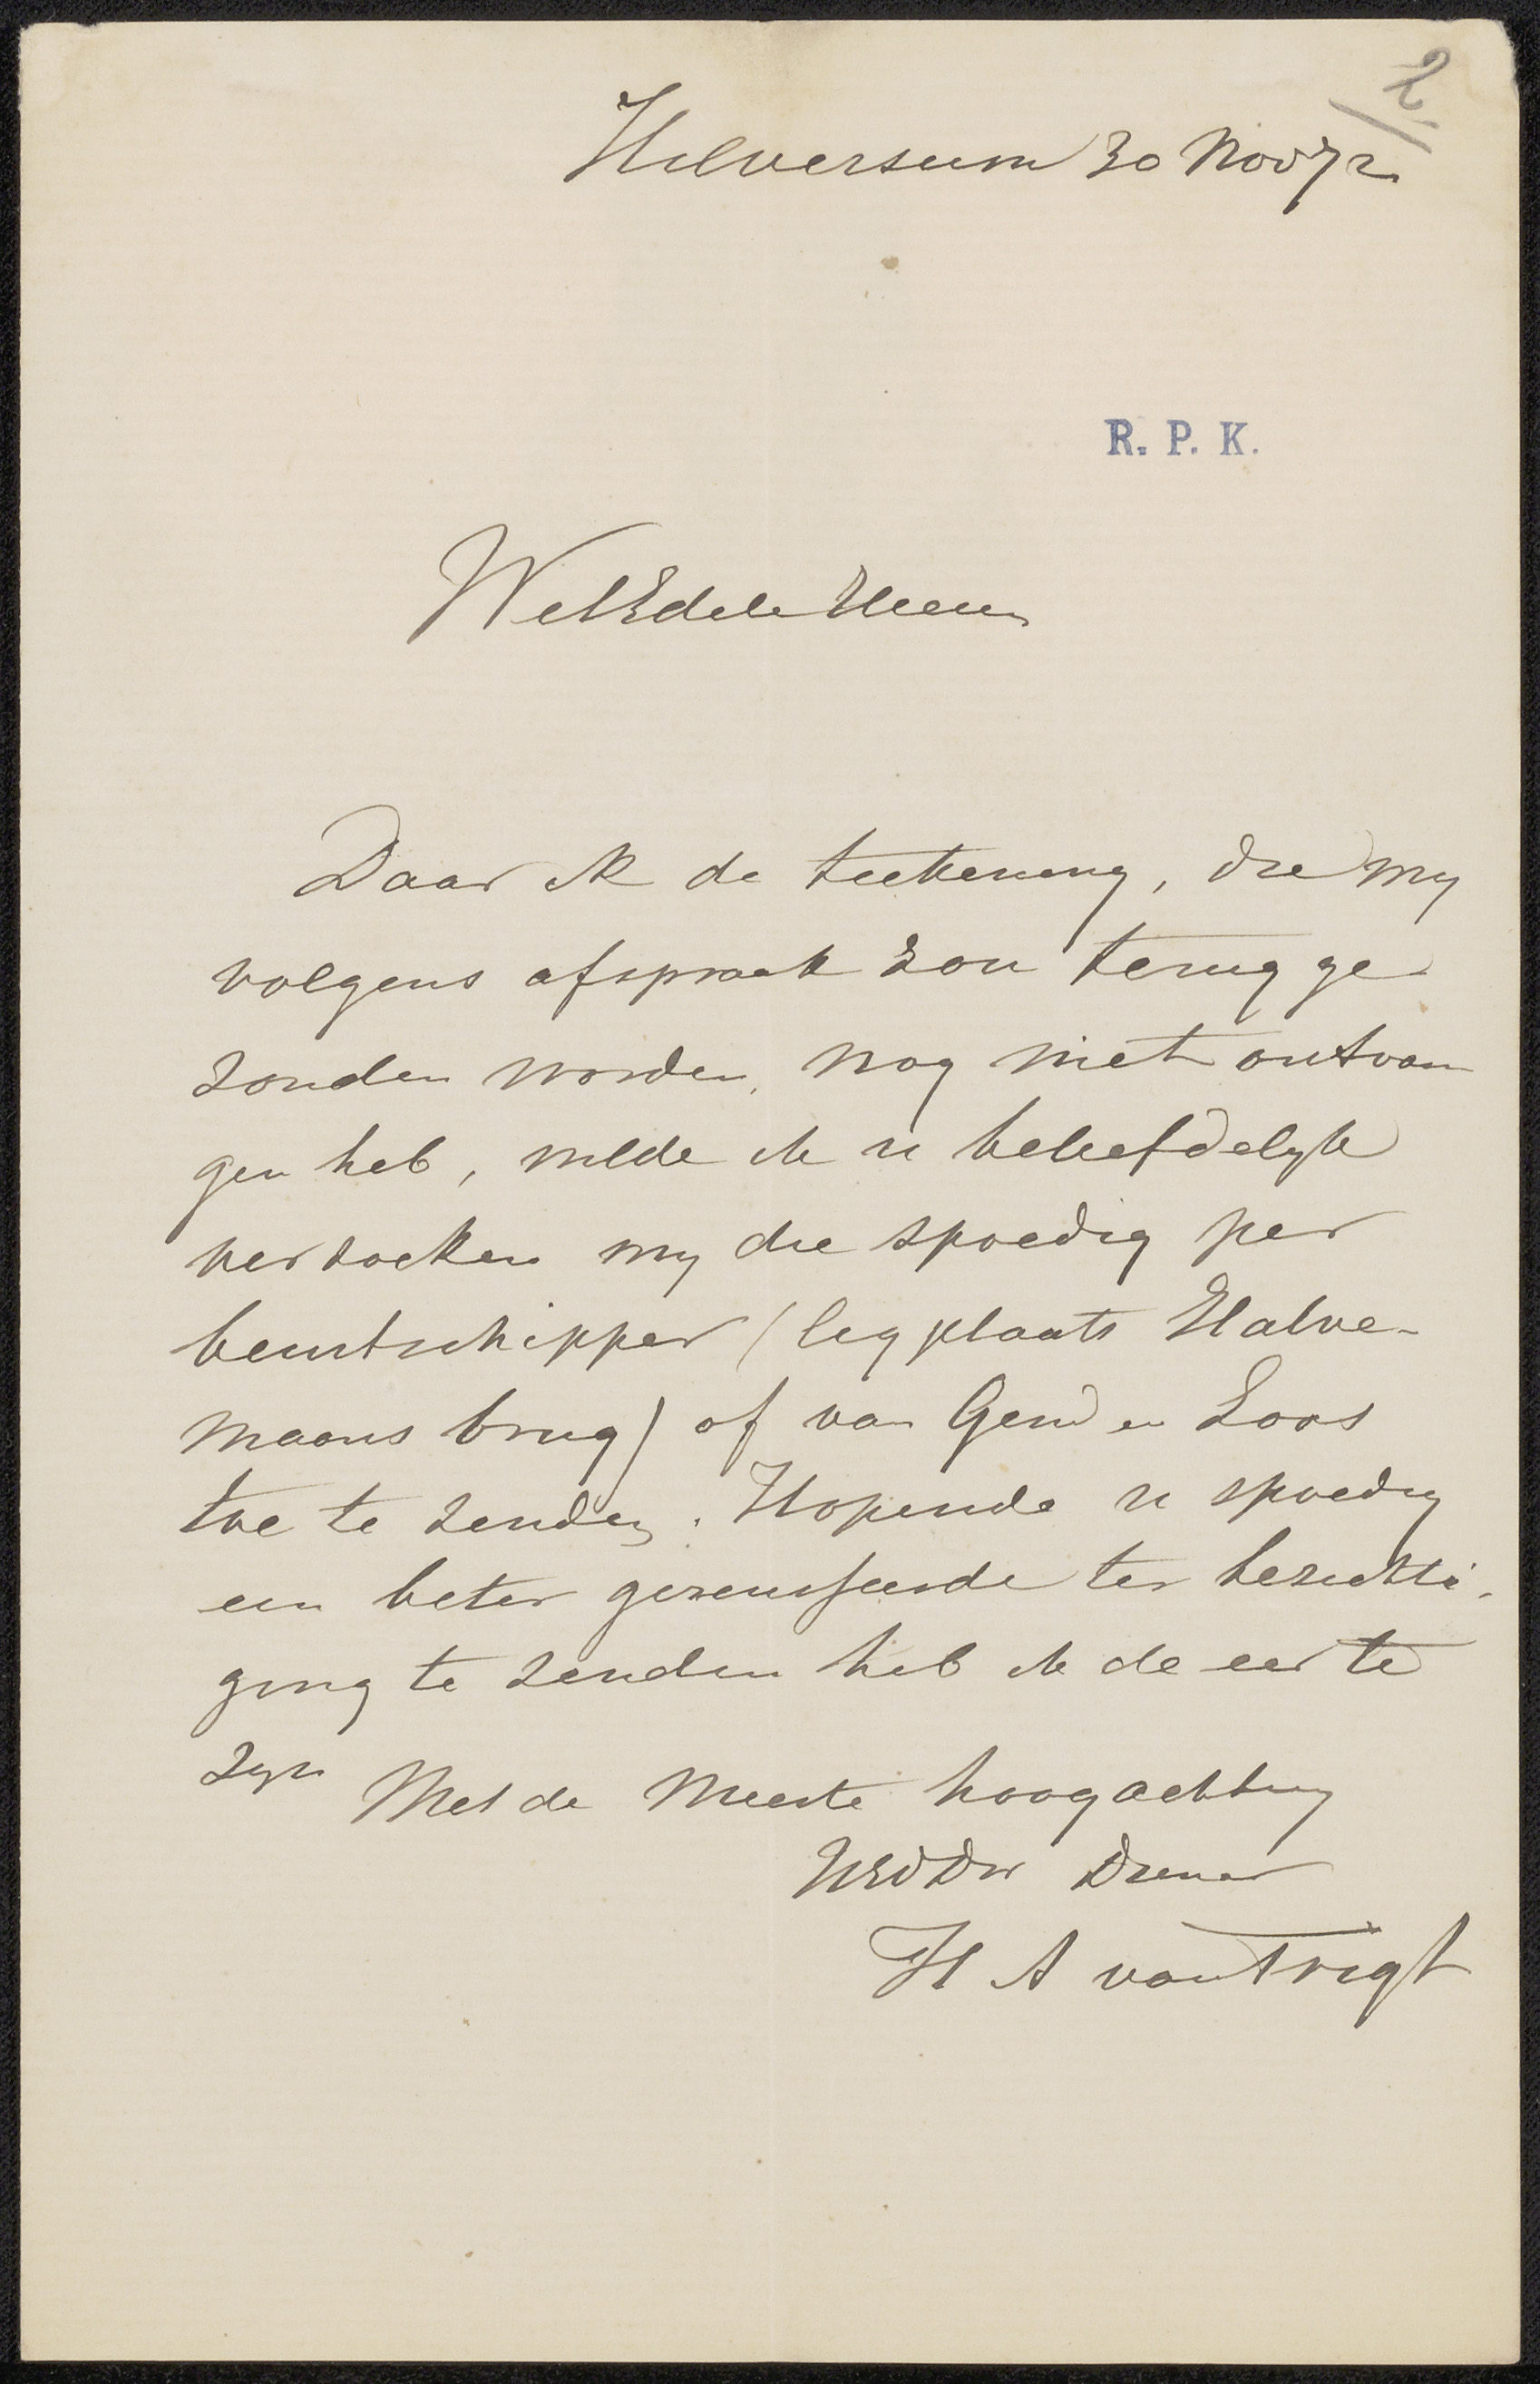 2
Hilversum 30 Nov 72
R. P. K.
WelEdele Heer
Daar ik de teekening, die my
volgens afspraak zou terug ge
zonden worden, nog niet ontvan
gen heb, wilde ik u beleefdelyk
verzoeken my die spoedig per
beurtschipper (legplaats Halve-
maans brug) of van Gend en Loos
toe te zenden. Hopende u spoedig
een beter gereusseerde ter bezichti-
ging te zenden heb ik de eer te
zyn Met de meeste hoogachting
UEdDw Dienaar
H A van Trigt